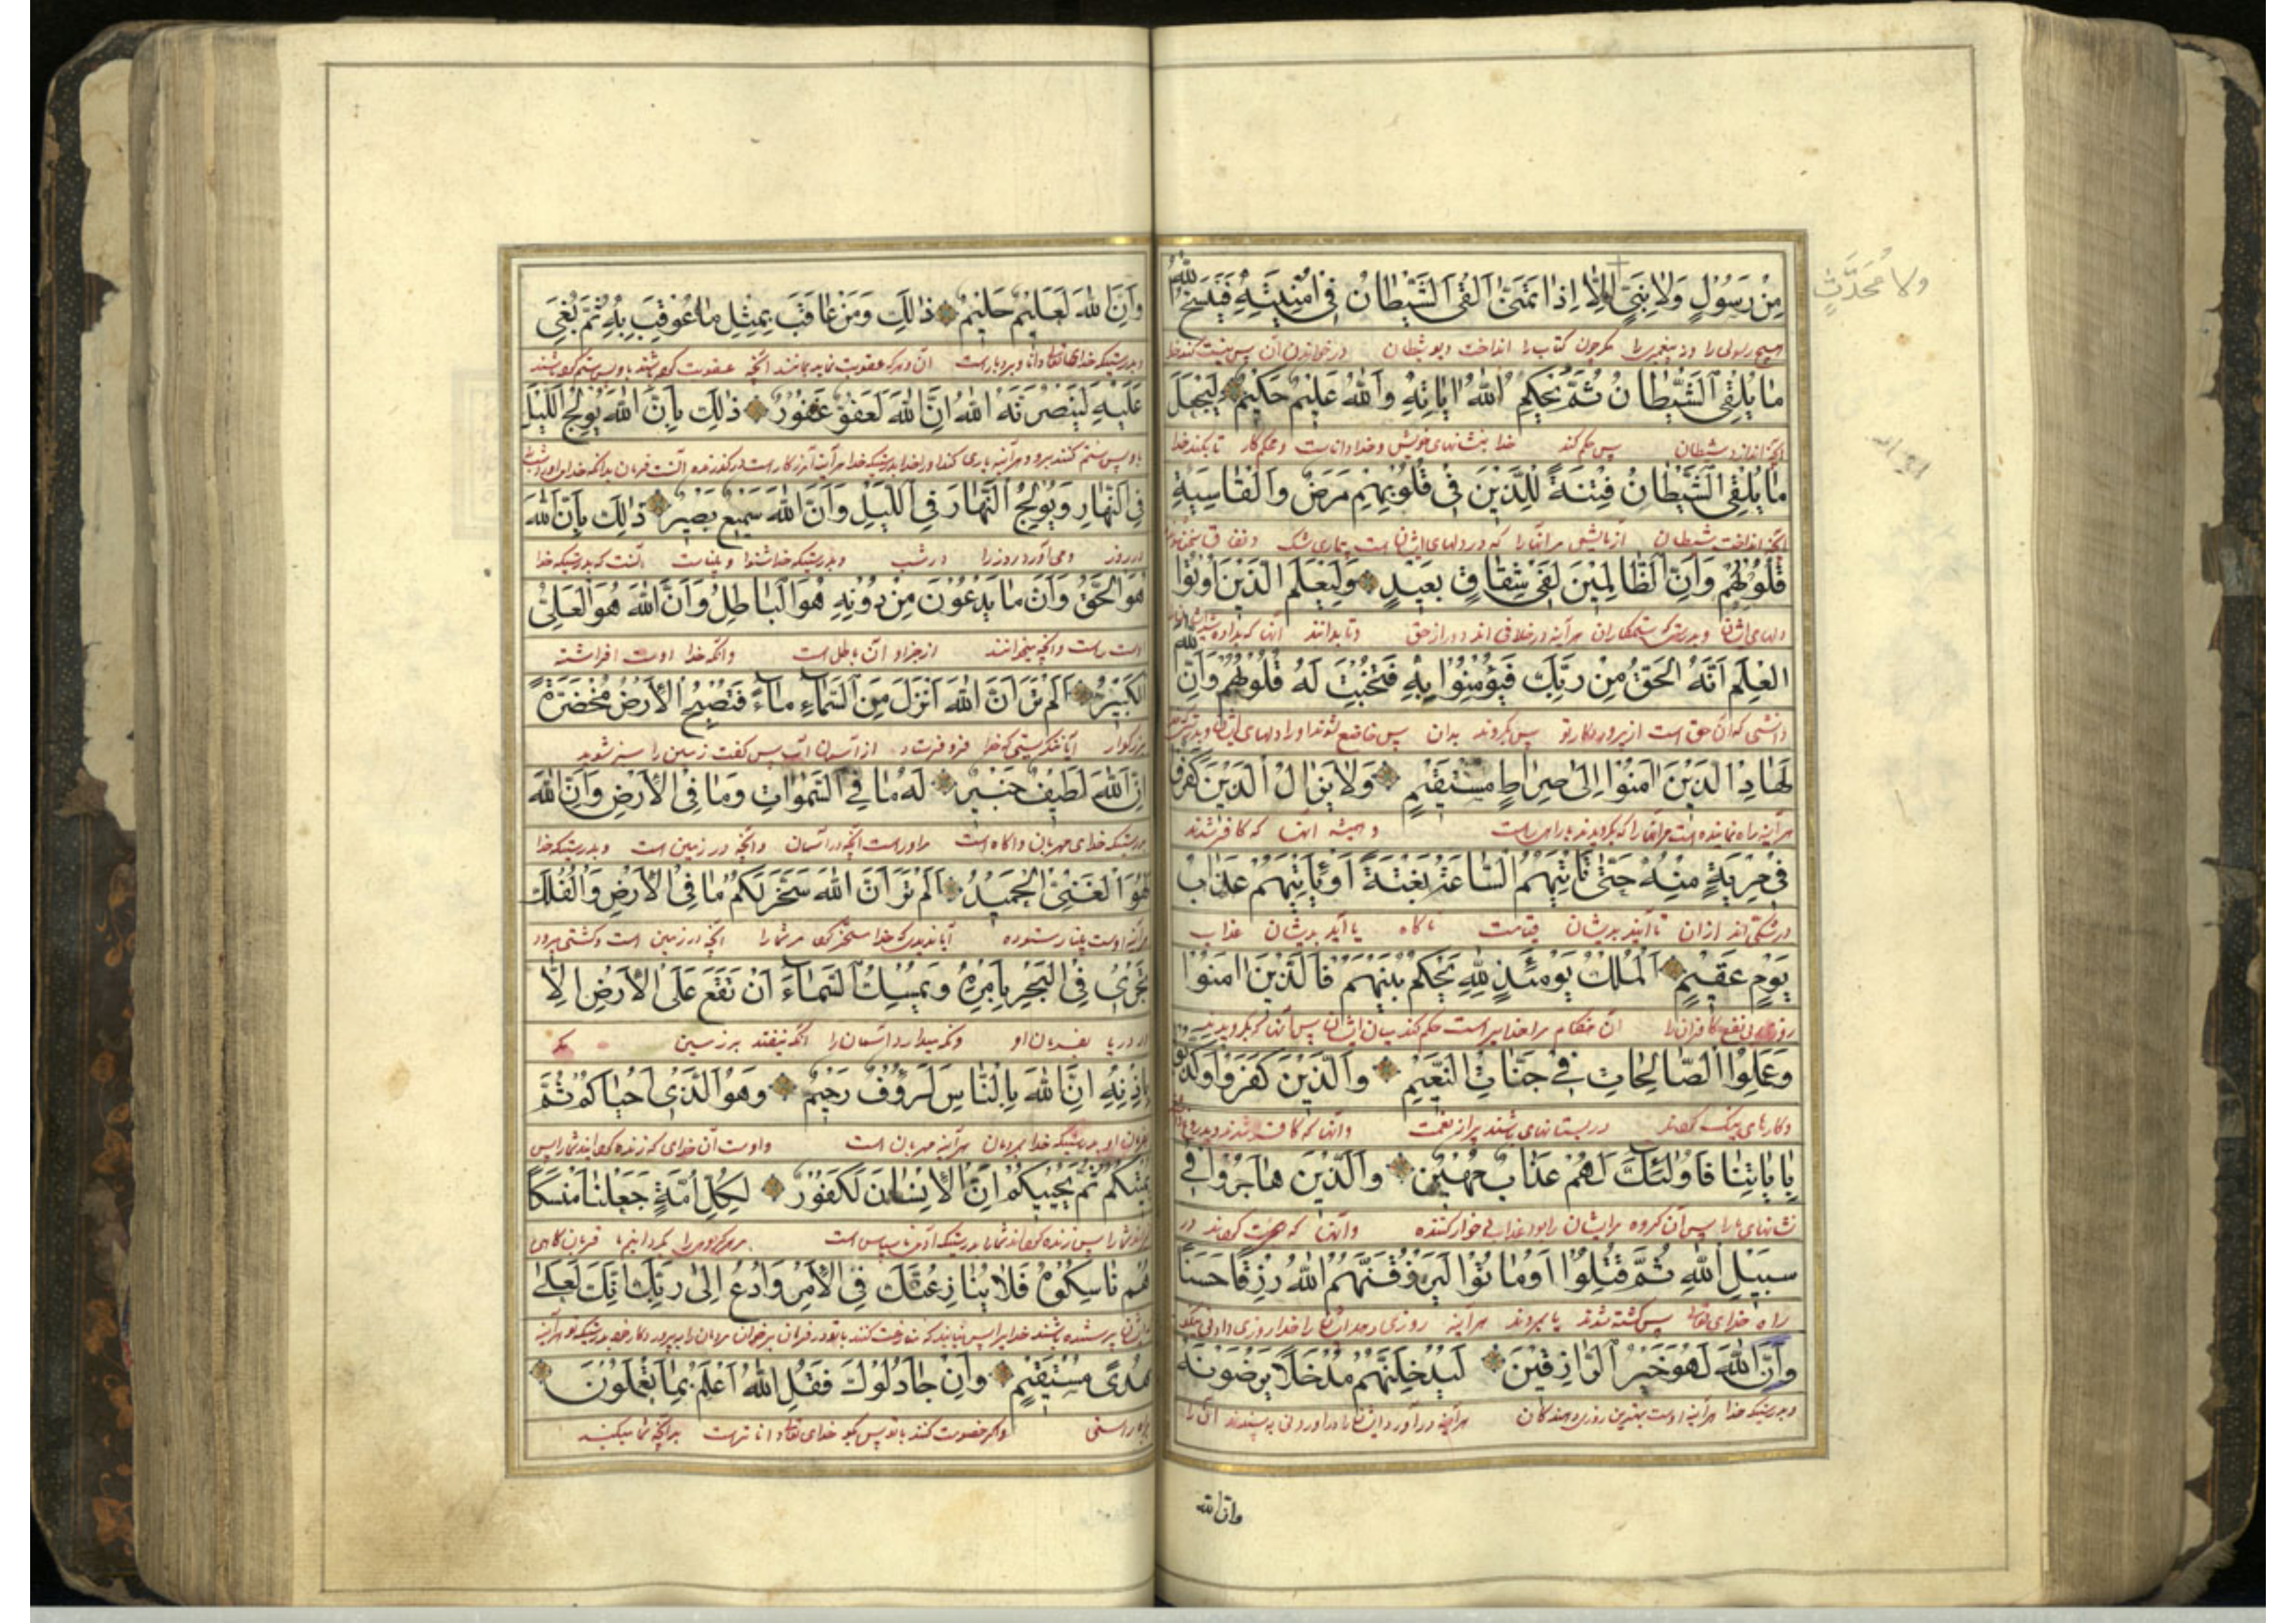 مِنْ رَسُولٍ وَلَا نَبِيٍّ اِلَّا اِذَا تَمَنّٰى اَلْقَى الشَّيْطَانُ فِي اُمْنِيَّتِهِ فَيَنْسَخُ اللّٰهُ
ولا مُحَدَّثٍ
هیچ رسولی را و نه پیغمبری را مگر چون کتاب را انداخت دیو شیطان در خواندن آن پس
مَا يُلْقِي الشَّيْطَانُ ثُمَّ يُحْكِمُ اللّٰهُ اٰيَاتِهِ وَاللّٰهُ عَلِيمٌ حَكِيمٌ لِيَجْعَلَ
آنچه اندازد شیطان پس حکم کند خدا بنشانهای خویش و خدا داناست و محکم کار تا بکند خدا
مَا يُلْقِي الشَّيْطَانُ فِتْنَةً لِلَّذِينَ فِي قُلُوبِهِمْ مَرَضٌ وَالْقَاسِيَةِ
آنچه انداخت شیطان آزمایش مر آنها را که در دلهای ایشان است بیماری شک
قُلُوبُهُمْ وَاِنَّ الظَّالِمِينَ لَفِي شِقَاقٍ بَعِيدٍ وَلِيَعْلَمَ الَّذِينَ اُوتُوا
دلهای ایشان و بدرستیکه ستمکاران هرآینه در خلافی اند دور از حق و تا بدانند آنها که
الْعِلْمَ اَنَّهُ الْحَقُّ مِنْ رَبِّكَ فَيُؤْمِنُوا بِهِ فَتُخْبِتَ لَهُ قُلُوبُهُمْ وَاِنَّ اللّٰهَ
دانشی که آن حق است از پروردگار تو پس بگروند بدان پس خاضع شوند او را دلهای ایشان
لَهَادِ الَّذِينَ اٰمَنُوا اِلٰى صِرَاطٍ مُسْتَقِيمٍ وَلَا يَزَالُ الَّذِينَ كَفَرُوا
هرآینه راه نماینده است مر آنها را که بگرویدند براه راست و همیشه آنها که کافر شدند
فِي مِرْيَةٍ مِنْهُ حَتّٰى تَاْتِيَهُمُ السَّاعَةُ بَغْتَةً اَوْ يَاْتِيَهُمْ عَذَابُ
در شکی اند از ان تا آید بدیشان قیامت ناگاه یا آید بدیشان عذاب
يَوْمٍ عَقِيمٍ اَلْمُلْكُ يَوْمَئِذٍ لِلّٰهِ يَحْكُمُ بَيْنَهُمْ فَالَّذِينَ اٰمَنُوا
روز بی نفع کافران را آن هنگام مر خدایراست حکم کند میان ایشان پس آنها که بگرویدند
وَعَمِلُوا الصَّالِحَاتِ فِي جَنَّاتِ النَّعِيمِ وَالَّذِينَ كَفَرُوا وَكَذَّبُوا
و کارهای نیک کردند در بستانهای باشند پر از نعمت و آنها که کافر شدند
بِاٰيَاتِنَا فَاُولٰئِكَ لَهُمْ عَذَابٌ مُهِينٌ وَالَّذِينَ هَاجَرُوا فِي
نشانهای ما را پس آن گروه مر ایشان را بود عذابی خوار کننده و آنها که هجرت کردند در
سَبِيلِ اللّٰهِ ثُمَّ قُتِلُوا اَوْ مَاتُوا لَيَرْزُقَنَّهُمُ اللّٰهُ رِزْقًا حَسَنًا
راه خدای تعالی پس کشته شدند یا بمردند هرآینه روزی دهد ایشان را خدا روزی
وَاِنَّ اللّٰهَ لَهُوَ خَيْرُ الرَّازِقِينَ لَيُدْخِلَنَّهُمْ مُدْخَلًا يَرْضَوْنَهُ
و بدرستیکه خدا هرآینه اوست بهترین روزی دهندگان هرآینه درآورد ایشان را
وان الله
وَاِنَّ اللّٰهَ لَعَلِيمٌ حَلِيمٌ ذٰلِكَ وَمَنْ عَاقَبَ بِمِثْلِ مَا عُوقِبَ بِهِ ثُمَّ بُغِيَ
و بدرستیکه خدای تعالی دانا و بردبار است آن و هر که عقوبت نماید بمانند آنچه عقوبت کرده شد
عَلَيْهِ لَيَنْصُرَنَّهُ اللّٰهُ اِنَّ اللّٰهَ لَعَفُوٌّ غَفُورٌ ذٰلِكَ بِاَنَّ اللّٰهَ يُولِجُ اللَّيْلَ
فِي النَّهَارِ وَيُولِجُ النَّهَارَ فِي اللَّيْلِ وَاَنَّ اللّٰهَ سَمِيعٌ بَصِيرٌ ذٰلِكَ بِاَنَّ اللّٰهَ
در روز و می آورد روز را در شب و بدرستیکه خدا شنوا و بیناست آنست که بدرستیکه خدا
هُوَ الْحَقُّ وَاَنَّ مَا يَدْعُونَ مِنْ دُونِهِ هُوَ الْبَاطِلُ وَاَنَّ اللّٰهَ هُوَ الْعَلِيُّ
اوست راست و آنچه میخوانند از جز او آن باطل است و آنکه خدا اوست افراشته
الْكَبِيرُ اَلَمْ تَرَ اَنَّ اللّٰهَ اَنْزَلَ مِنَ السَّمَاءِ مَاءً فَتُصْبِحُ الْاَرْضُ مُخْضَرَّةً
بزرگوار آیا ننگریستی که خدا فرو فرستاد از آسمان آب پس گفت زمین را سبز شوید
اِنَّ اللّٰهَ لَطِيفٌ خَبِيرٌ لَهُ مَا فِي السَّمٰوَاتِ وَمَا فِي الْاَرْضِ وَاِنَّ اللّٰهَ
بدرستیکه خدای مهربان و آگاه است مر او راست آنچه در آسمان و آنچه در زمین است و بدرستیکه خدا
لَهُوَ الْغَنِيُّ الْحَمِيدُ اَلَمْ تَرَ اَنَّ اللّٰهَ سَخَّرَ لَكُمْ مَا فِي الْاَرْضِ وَالْفُلْكَ
هرآینه اوست بی نیاز ستوده آیا ندیدی که خدا مسخر کرد مر شما را آنچه در زمین است و کشتی میرود
تَجْرِي فِي الْبَحْرِ بِاَمْرِهِ وَيُمْسِكُ السَّمَاءَ اَنْ تَقَعَ عَلَى الْاَرْضِ اِلَّا
در دریا بفرمان او و نگه میدارد آسمان را آنکه نیفتد بر زمین مگر
بِاِذْنِهِ اِنَّ اللّٰهَ بِالنَّاسِ لَرَؤُفٌ رَحِيمٌ وَهُوَ الَّذِي اَحْيَاكُمْ ثُمَّ
بفرمان او بدرستیکه خدا بمردمان هرآینه مهربان است و اوست آن خدای که زنده گرداند شما را پس
يُمِيتُكُمْ ثُمَّ يُحْيِيكُمْ اِنَّ الْاِنْسَانَ لَكَفُورٌ لِكُلِّ اُمَّةٍ جَعَلْنَا مَنْسَكًا
هُمْ نَاسِكُوهُ فَلَا يُنَازِعُنَّكَ فِي الْاَمْرِ وَادْعُ اِلٰى رَبِّكَ اِنَّكَ لَعَلٰى
هُدًى مُسْتَقِيمٍ وَاِنْ جَادَلُوكَ فَقُلِ اللّٰهُ اَعْلَمُ بِمَا تَعْمَلُونَ
براه راستی و اگر خصومت کنند با تو پس بگو خدای تعالی داناتر است بدانچه شما میکنید